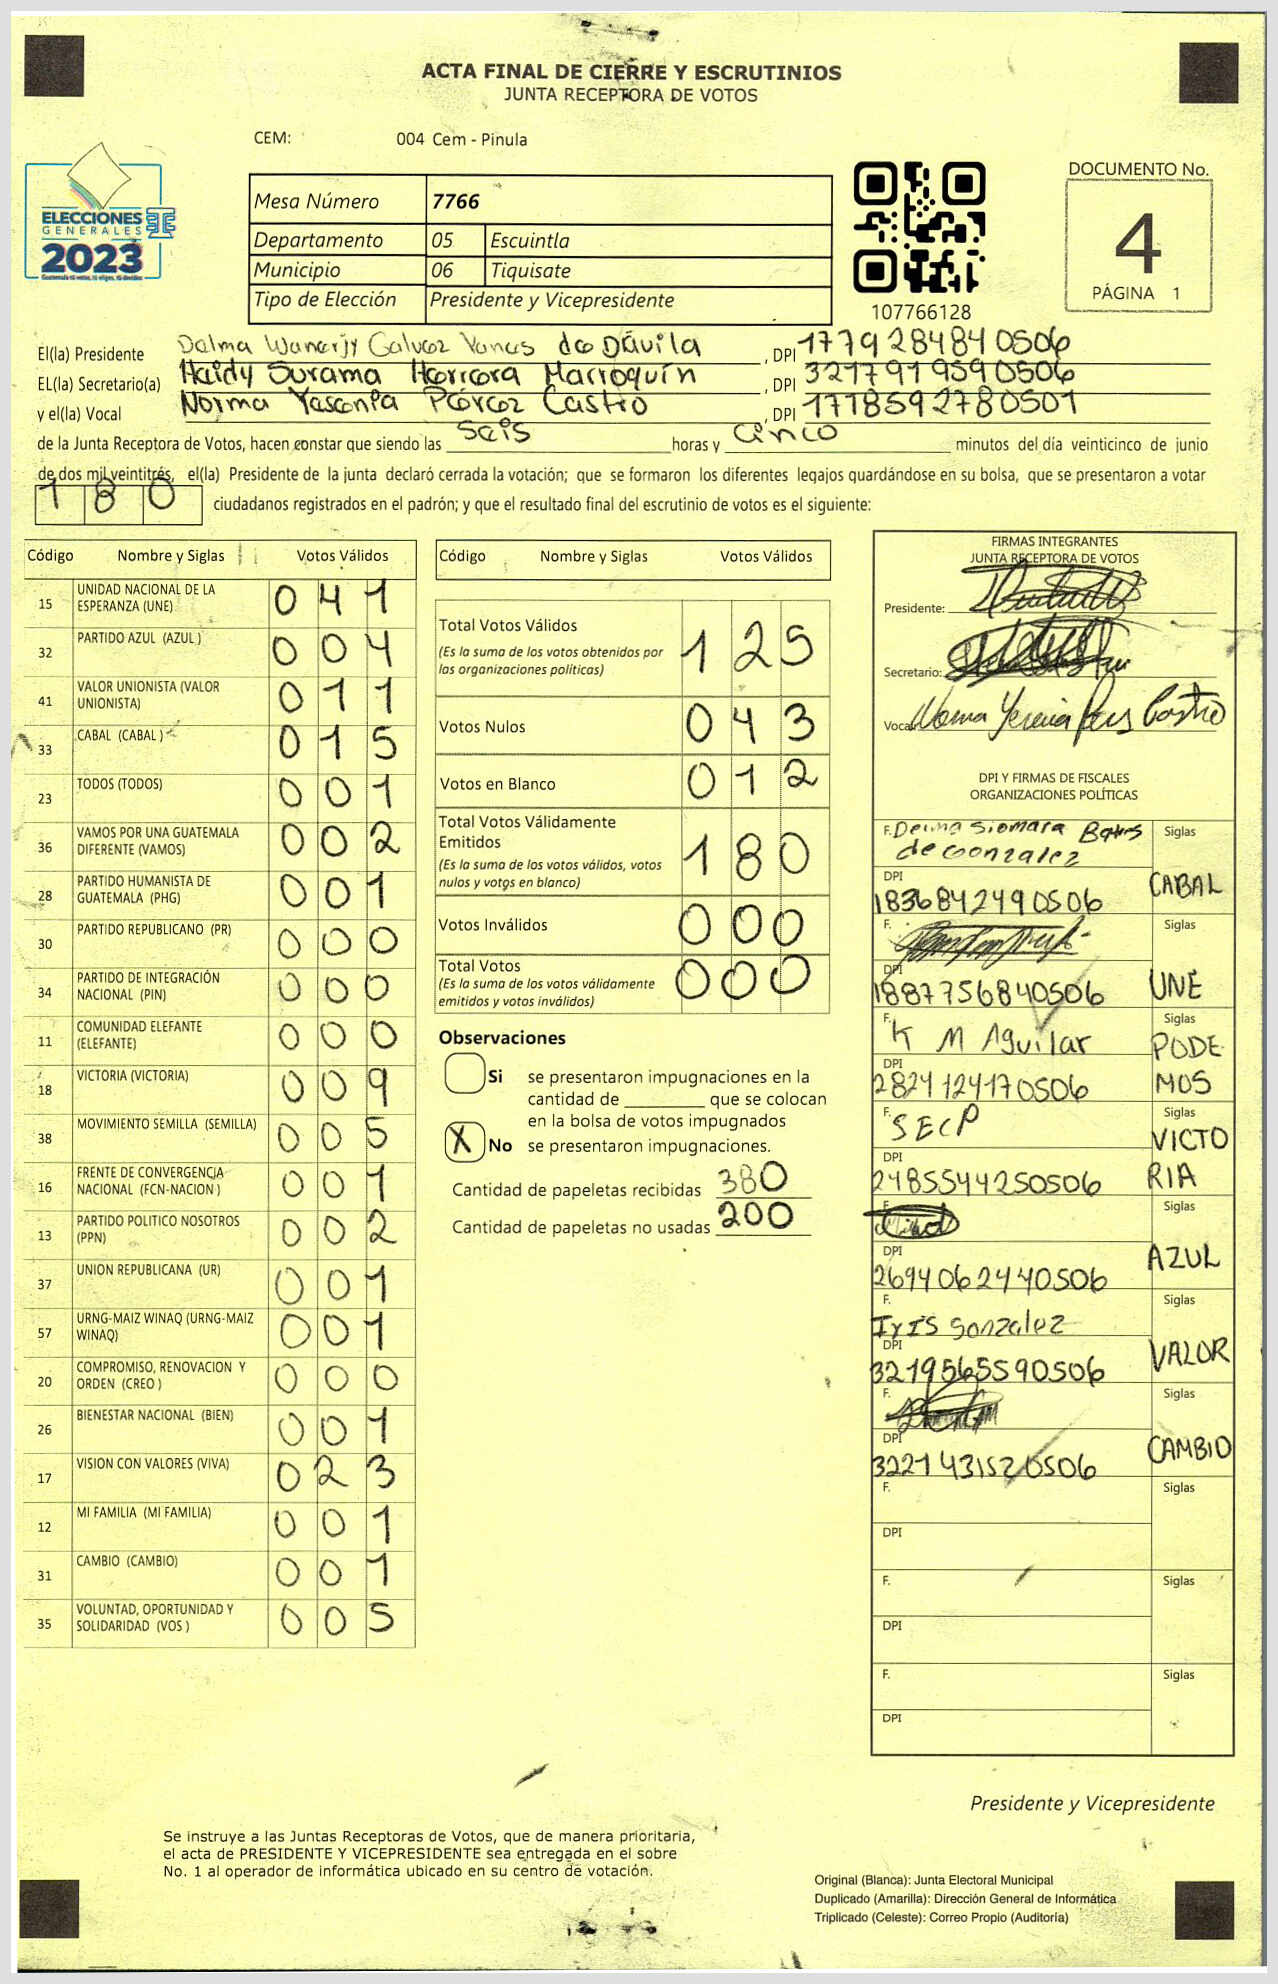 ACTA FINAL DE CIERRE Y ESCRUTINIOS
JUNTA RECEPTORA DE VOTOS
CEM: 004 Cem - Pinula
ELECCIONES
GENERALES
2023
Mesa Número 7766
Departamento 05 Escuintla
Municipio 06 Tiquisate
Tipo de Elección Presidente y Vicepresidente
107766128
DOCUMENTO No.
4
PÁGINA 1
El(la) Presidente Dalma Galvez de Dávila , DPI 1779284840506
EL(la) Secretario(a) Haidy Surama Herrera Marroquín , DPI 3217919590506
y el(la) Vocal Norma Yesenia Pérez Castro , DPI 1778592780501
de la Junta Receptora de Votos, hacen constar que siendo las seis horas y cinco minutos del día veinticinco de junio
de dos mil veintitrés, el(la) Presidente de la junta declaró cerrada la votación; que se formaron los diferentes legajos quardándose en su bolsa, que se presentaron a votar
180 ciudadanos registrados en el padrón; y que el resultado final del escrutinio de votos es el siguiente:
Código Nombre y Siglas Votos Válidos
15 UNIDAD NACIONAL DE LA ESPERANZA (UNE) 041
32 PARTIDO AZUL (AZUL ) 004
41 VALOR UNIONISTA (VALOR UNIONISTA) 011
33 CABAL (CABAL ) 015
23 TODOS (TODOS) 001
36 VAMOS POR UNA GUATEMALA DIFERENTE (VAMOS) 002
28 PARTIDO HUMANISTA DE GUATEMALA (PHG) 001
30 PARTIDO REPUBLICANO (PR) 000
34 PARTIDO DE INTEGRACIÓN NACIONAL (PIN) 000
11 COMUNIDAD ELEFANTE (ELEFANTE) 000
18 VICTORIA (VICTORIA) 009
38 MOVIMIENTO SEMILLA (SEMILLA) 005
16 FRENTE DE CONVERGENCIA NACIONAL (FCN-NACION ) 001
13 PARTIDO POLITICO NOSOTROS (PPN) 002
37 UNION REPUBLICANA (UR) 001
57 URNG-MAIZ WINAQ (URNG-MAIZ WINAQ) 001
20 COMPROMISO, RENOVACION Y ORDEN (CREO ) 000
26 BIENESTAR NACIONAL (BIEN) 001
17 VISION CON VALORES (VIVA) 023
12 MI FAMILIA (MI FAMILIA) 001
31 CAMBIO (CAMBIO) 001
35 VOLUNTAD, OPORTUNIDAD Y SOLIDARIDAD (VOS ) 005
Código Nombre y Siglas Votos Válidos
Total Votos Válidos 125
(Es la suma de los votos obtenidos por
las organizaciones políticas)
Votos Nulos 043
Votos en Blanco 012
Total Votos Válidamente
Emitidos 180
(Es la suma de los votos válidos, votos
nulos y votos en blanco)
Votos Inválidos 000
Total Votos 000
(Es la suma de los votos válidamente
emitidos y votos inválidos)
Observaciones
Si se presentaron impugnaciones en la
cantidad de ________ que se colocan
en la bolsa de votos impugnados
X No se presentaron impugnaciones.
Cantidad de papeletas recibidas 380
Cantidad de papeletas no usadas 200
FIRMAS INTEGRANTES
JUNTA RECEPTORA DE VOTOS
Presidente:
Secretario:
Vocal
DPI Y FIRMAS DE FISCALES
ORGANIZACIONES POLÍTICAS
F. Siomara
de Gonzalez
Siglas CABAL
DPI 1836842490506
F.
Siglas UNE
DPI 1887756840506
F. K M Aguilar
Siglas PODEMOS
DPI 2824124170506
F. SECP
Siglas VICTORIA
DPI 2485544250506
F.
Siglas AZUL
DPI 2694062440506
F. Iris Gonzalez
Siglas VALOR
DPI 3219565590506
F.
Siglas CAMBIO
DPI 3221431520506
F. Siglas
DPI
F. Siglas
DPI
F. Siglas
DPI
Presidente y Vicepresidente
Se instruye a las Juntas Receptoras de Votos, que de manera prioritaria,
el acta de PRESIDENTE Y VICEPRESIDENTE sea entregada en el sobre
No. 1 al operador de informática ubicado en su centro de votación.
Original (Blanca): Junta Electoral Municipal
Duplicado (Amarilla): Dirección General de Informática
Triplicado (Celeste): Correo Propio (Auditoría)